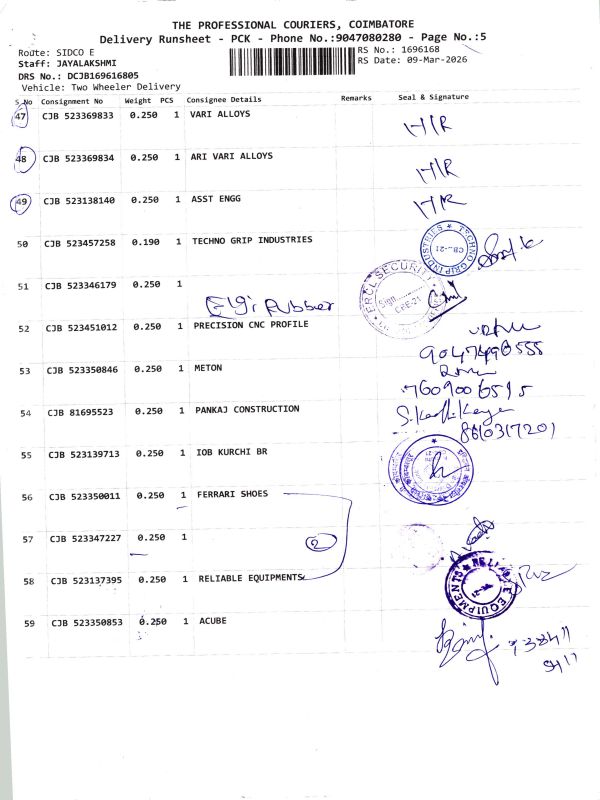 THE PROFESSIONAL COURIERS, COIMBATORE
Delivery Runsheet - PCK - Phone No.:9047080280 - Page No.:5
Route: SIDCO E
RS No.: 1696168
Staff: JAYALAKSHMI
RS Date: 09-Mar-2026
DRS No.: DCJB169616805
Vehicle: Two Wheeler Delivery
S.No Consignment No Weight PCS Consignee Details Remarks Seal & Signature
47 CJB 523369833 0.250 1 VARI ALLOYS H/R
48 CJB 523369834 0.250 1 ARI VARI ALLOYS H/R
49 CJB 523138140 0.250 1 ASST ENGG H/R
50 CJB 523457258 0.190 1 TECHNO GRIP INDUSTRIES
TECHNO GRIP INDUSTRIES
51 CJB 523346179 0.250 1
FRCL SECURITY
Elgi Rubber
52 CJB 523451012 0.250 1 PRECISION CNC PROFILE
53 CJB 523350846 0.250 1 METON
54 CJB 81695523 0.250 1 PANKAJ CONSTRUCTION
8610317201
55 CJB 523139713 0.250 1 IOB KURCHI BR
56 CJB 523350011 0.250 1 FERRARI SHOES
57 CJB 523347227 0.250 1
2
58 CJB 523137395 0.250 1 RELIABLE EQUIPMENTS
RELIABLE EQUIPMENTS
59 CJB 523350853 0.250 1 ACUBE